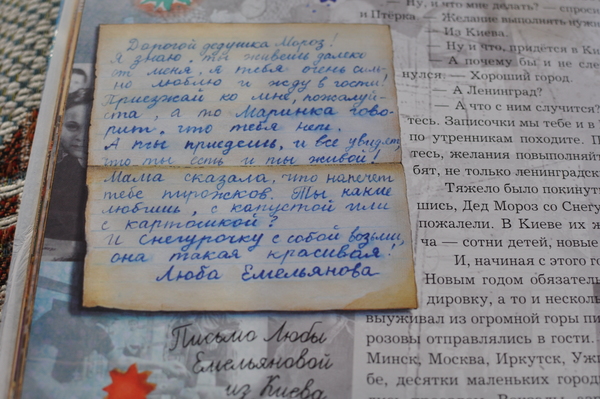 Дорогой дедушка Мороз!
Я знаю, ты живёшь далеко
от меня, я тебя очень силь-
но люблю и жду в гости!
Приезжай ко мне, пожалуй-
ста, а то Маринка гово-
рит, что тебя нет.
А ты приедешь, и все увидят
что ты есть и ты живой!
Мама сказала, что напечёт
тебе пирожков. Ты какие
любишь, с капустой или
с картошкой?
И Снегурочку с собой возьми,
она такая красивая!
Люба Емельянова
Письмо Любы
Емельяновой
из Киева
— Ну, и что мне делать? — спроси
и Птёрка. — Желание выполнять нужн
— Из Киева.
— Ну и что, придётся в Ки
— А почему бы и не сле
нулся. — Хороший город.
— А Ленинград?
— А что с ним случится?
тесь. Записочки мы тебе и в
по утренникам походите. П
тесь, желания повыполняйт
бят, не только ленинградски
Тяжело было покинут
шись, Дед Мороз со Снегу
пожалели. В Киеве их ж
ча — сотни детей, новые
И, начиная с этого г
Новым годом обязатель
дировку, а то и несколь
выуживал из огромной горы пи
розовы отправлялись в гости.
Минск, Москва, Иркутск, Уж
бе, десятки маленьких город